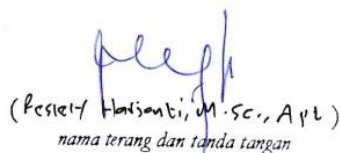 (Reskiy Harjanti, M.Sc., Apt)
nama terang dan tanda tangan